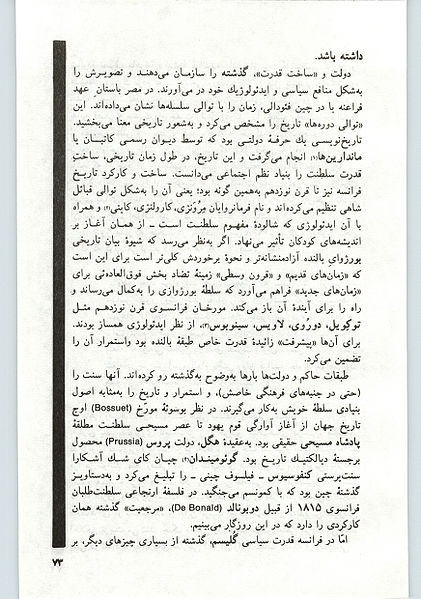 داشته باشد.
دولت و «ساخت قدرت»، گذشته را سازمان می‌دهند و تصویرش را
به‌شکل منافع سیاسی و ایدئولوژیك خود در می‌آورند. در مصر باستان عهد
فراعنه یا در چین فئودالی، زمان را با توالی سلسله‌ها نشان می‌داده‌اند. این
«توالی دوره‌ها» تاریخ را مشخص می‌کرد و به‌شعور تاریخی معنا می‌بخشید.
تاریخ‌نویسی یك حرفهٔ دولتی بود که توسط دیوان رسمی کاتبان یا
ماندارین‌ها(۱) انجام می‌گرفت و این تاریخ، در طول زمان تاریخی، ساختِ
قدرت سلطنت را بنیاد نظم اجتماعی می‌دانست. ساخت و کارکرد تاریخ
فرانسه نیز تا قرن نوزدهم به‌همین گونه بود؛ یعنی آن را به‌شکل توالی قبائل
شاهی تنظیم می‌کرده‌اند و نام فرمانروایان مِرُوَنژی، کارولنژی، کاپتی(۲) و همراه
با آن ایدئولوژی که شالودهٔ مفهوم سلطنت است ـ از همان آغاز بر
اندیشه‌های کودکان تأثیر می‌نهاد. اگر به‌نظر می‌رسد که شیوهٔ بیان تاریخی
بورژوایِ بالنده آزادمنشانه‌تر و نحوهٔ برخوردش کلی‌تر است برای این است
که «زمان‌های قدیم» و «قرون وسطی» زمینهٔ تضاد بخش فوق‌العاده‌ئی برای
«زمان‌های جدید» فراهم می‌آورد که سلطهٔ بورژوازی را به‌کمال می‌رساند و
راه را برای آیندهٔ آن باز می‌کند. مورخان فرانسوی قرن نوزدهم مثل
توکویل، دوروی، لاویس، سینوبوس(۳)، از نظر ایدئولوژی همساز بودند.
برای آن‌ها «پیشرفت» زائیدهٔ قدرت خاص طبقهٔ بالنده بود واستمرار آن را
تضمین می‌کرد.
طبقات حاکم و دولت‌ها بارها به‌وضوح به‌گذشته رو کرده‌اند. آنها سنت را
(حتی در جنبه‌های فرهنگی خاصش)، و استمرار و تاریخ را به‌مثابه اصول
بنیادی سلطهٔ خویش به‌کار می‌گیرند. در نظر بوسوئهٔ مورّخ (Bossuet) اوج
تاریخ جهان از آغاز آوارگی قوم یهود تا عصر مسیحی سلطنت مطلقهٔ
پادشاه مسیحی حقیقی بود. به‌عقیدهٔ هگل، دولت پروس (Prussia) محصول
برجستهٔ دیالکتیك تاریخ بود. گوئومیندان(۴) چیان کای شك آشکارا
سنت‌پرستی کنفوسیوس ـ فیلسوف چینی ـ را تبلیغ می‌کرد و به‌دستاویز
گذشتهٔ چین بود که با کمونیسم می‌جنگید. در فلسفهٔ ارتجاعی سلطنت‌طلبان
فرانسوی ۱۸۱۵ از قبیل دوبونالد (De Bonald)، «مرجعیت» گذشته همان
کارکردی را دارد که در این روزگار می‌بینیم.
امّا در فرانسه قدرت سیاسی گُلیسم، گذشته از بسیاری چیزهای دیگر، بر
۷۳